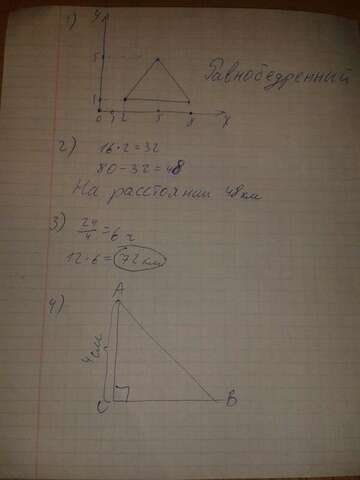 1)
у
5
1
0 2 5 8 х
Равнобедренный
2) 16·2=32
80-32=48
На расстоянии 48 км
3) 24/4=6 ч
12·6=72 км
4)
А
4 см
С В